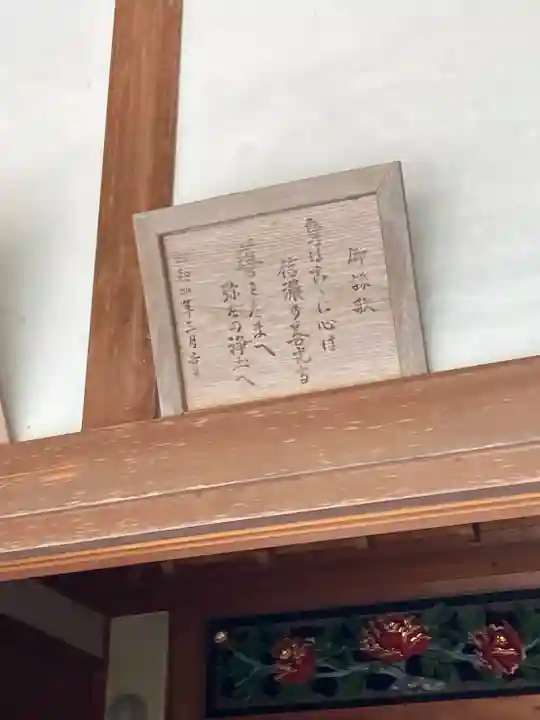 御詠歌
身はここに心は
信濃の善光寺
導きたまへ
弥陀の浄土へ
昭和 年 月吉日